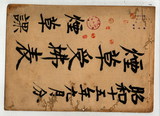 昭和五年九月分
煙草受拂表
煙草課